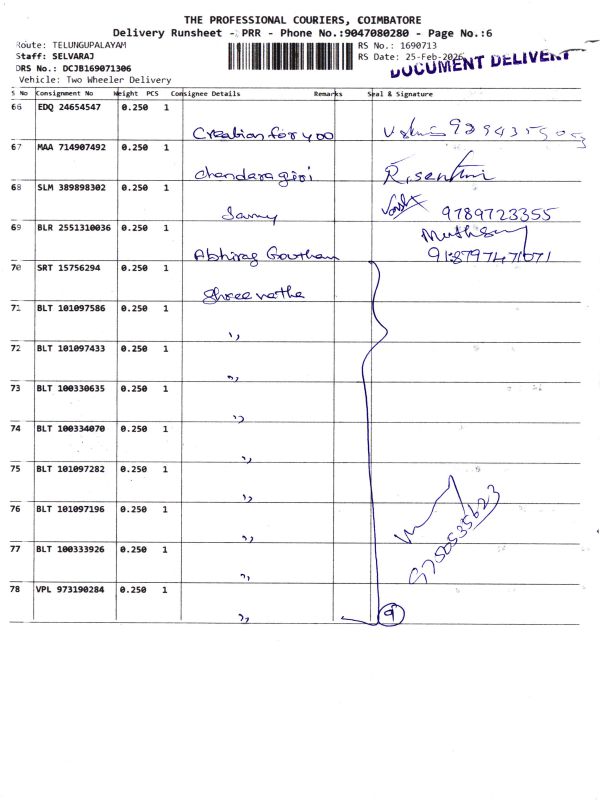 THE PROFESSIONAL COURIERS, COIMBATORE
Delivery Runsheet - PRR - Phone No.:9047080280 - Page No.:6
Route: TELUNGUPALAYAM
RS No.: 1690713
Staff: SELVARAJ
RS Date: 25-Feb-2026
DRS No.: DCJB169071306
DOCUMENT DELIVERY
Vehicle: Two Wheeler Delivery
S No Consignment No Weight PCS Consignee Details Remarks Seal & Signature
66 EDQ 24654547 0.250 1
Creation for you
67 MAA 714907492 0.250 1
Chandaragiri R. senthil
68 SLM 389898302 0.250 1
9789723355
69 BLR 2551310036 0.250 1
Abhirag Gowtham
70 SRT 15756294 0.250 1
Shree netha
71 BLT 101097586 0.250 1
,,
72 BLT 101097433 0.250 1
,,
73 BLT 100330635 0.250 1
,,
74 BLT 100334070 0.250 1
,,
75 BLT 101097282 0.250 1
,,
76 BLT 101097196 0.250 1
,,
9750535623
77 BLT 100333926 0.250 1
,,
78 VPL 973190284 0.250 1
,, 9